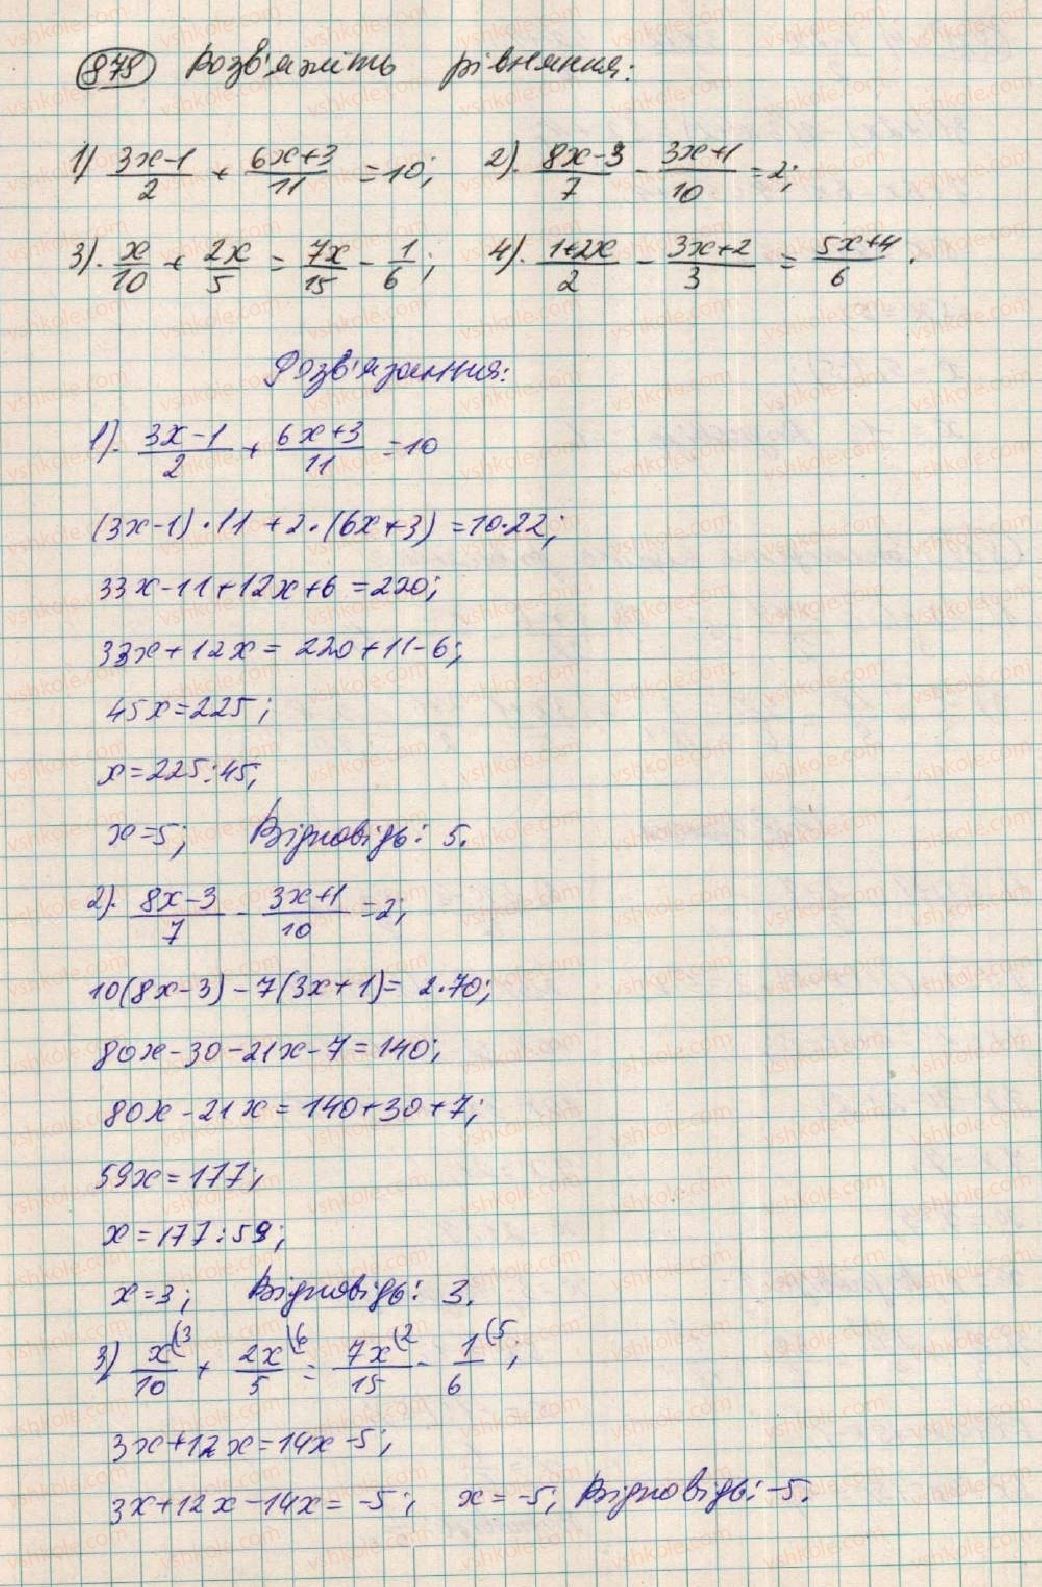 879 Розв'яжіть рівняння:
1) (3x-1)/2 + (6x+3)/11 = 10; 2). (8x-3)/7 - (3x+1)/10 = 2;
3). x/10 + 2x/5 = 7x/15 - 1/6; 4). (1+2x)/2 - (3x+2)/3 = (5x+4)/6.
Розв'язання:
1). (3x-1)/2 + (6x+3)/11 = 10
(3x-1)·11+2·(6x+3) = 10·22;
33x-11+12x+6 = 220;
33x+12x = 220+11-6;
45x = 225;
x = 225:45;
x = 5; Відповідь: 5.
2). (8x-3)/7 - (3x+1)/10 = 2;
10(8x-3)-7(3x+1) = 2·70;
80x-30-21x-7 = 140;
80x-21x = 140+30+7;
59x = 177;
x = 177:59;
x = 3; Відповідь: 3.
3) x/10 (3 + 2x/5 (6 = 7x/15 (2 - 1/6 (5;
3x+12x = 14x-5;
3x+12x-14x = -5; x = -5; Відповідь: -5.